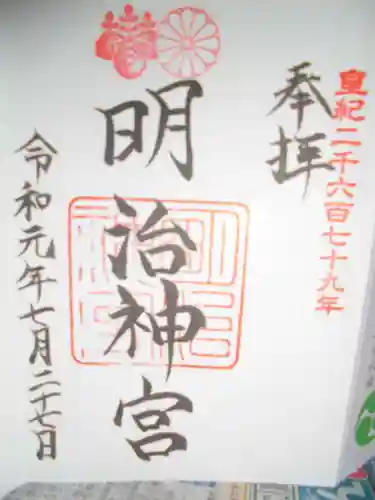 皇紀二千六百七十九年
奉拝
明治神宮
令和元年七月二十七日